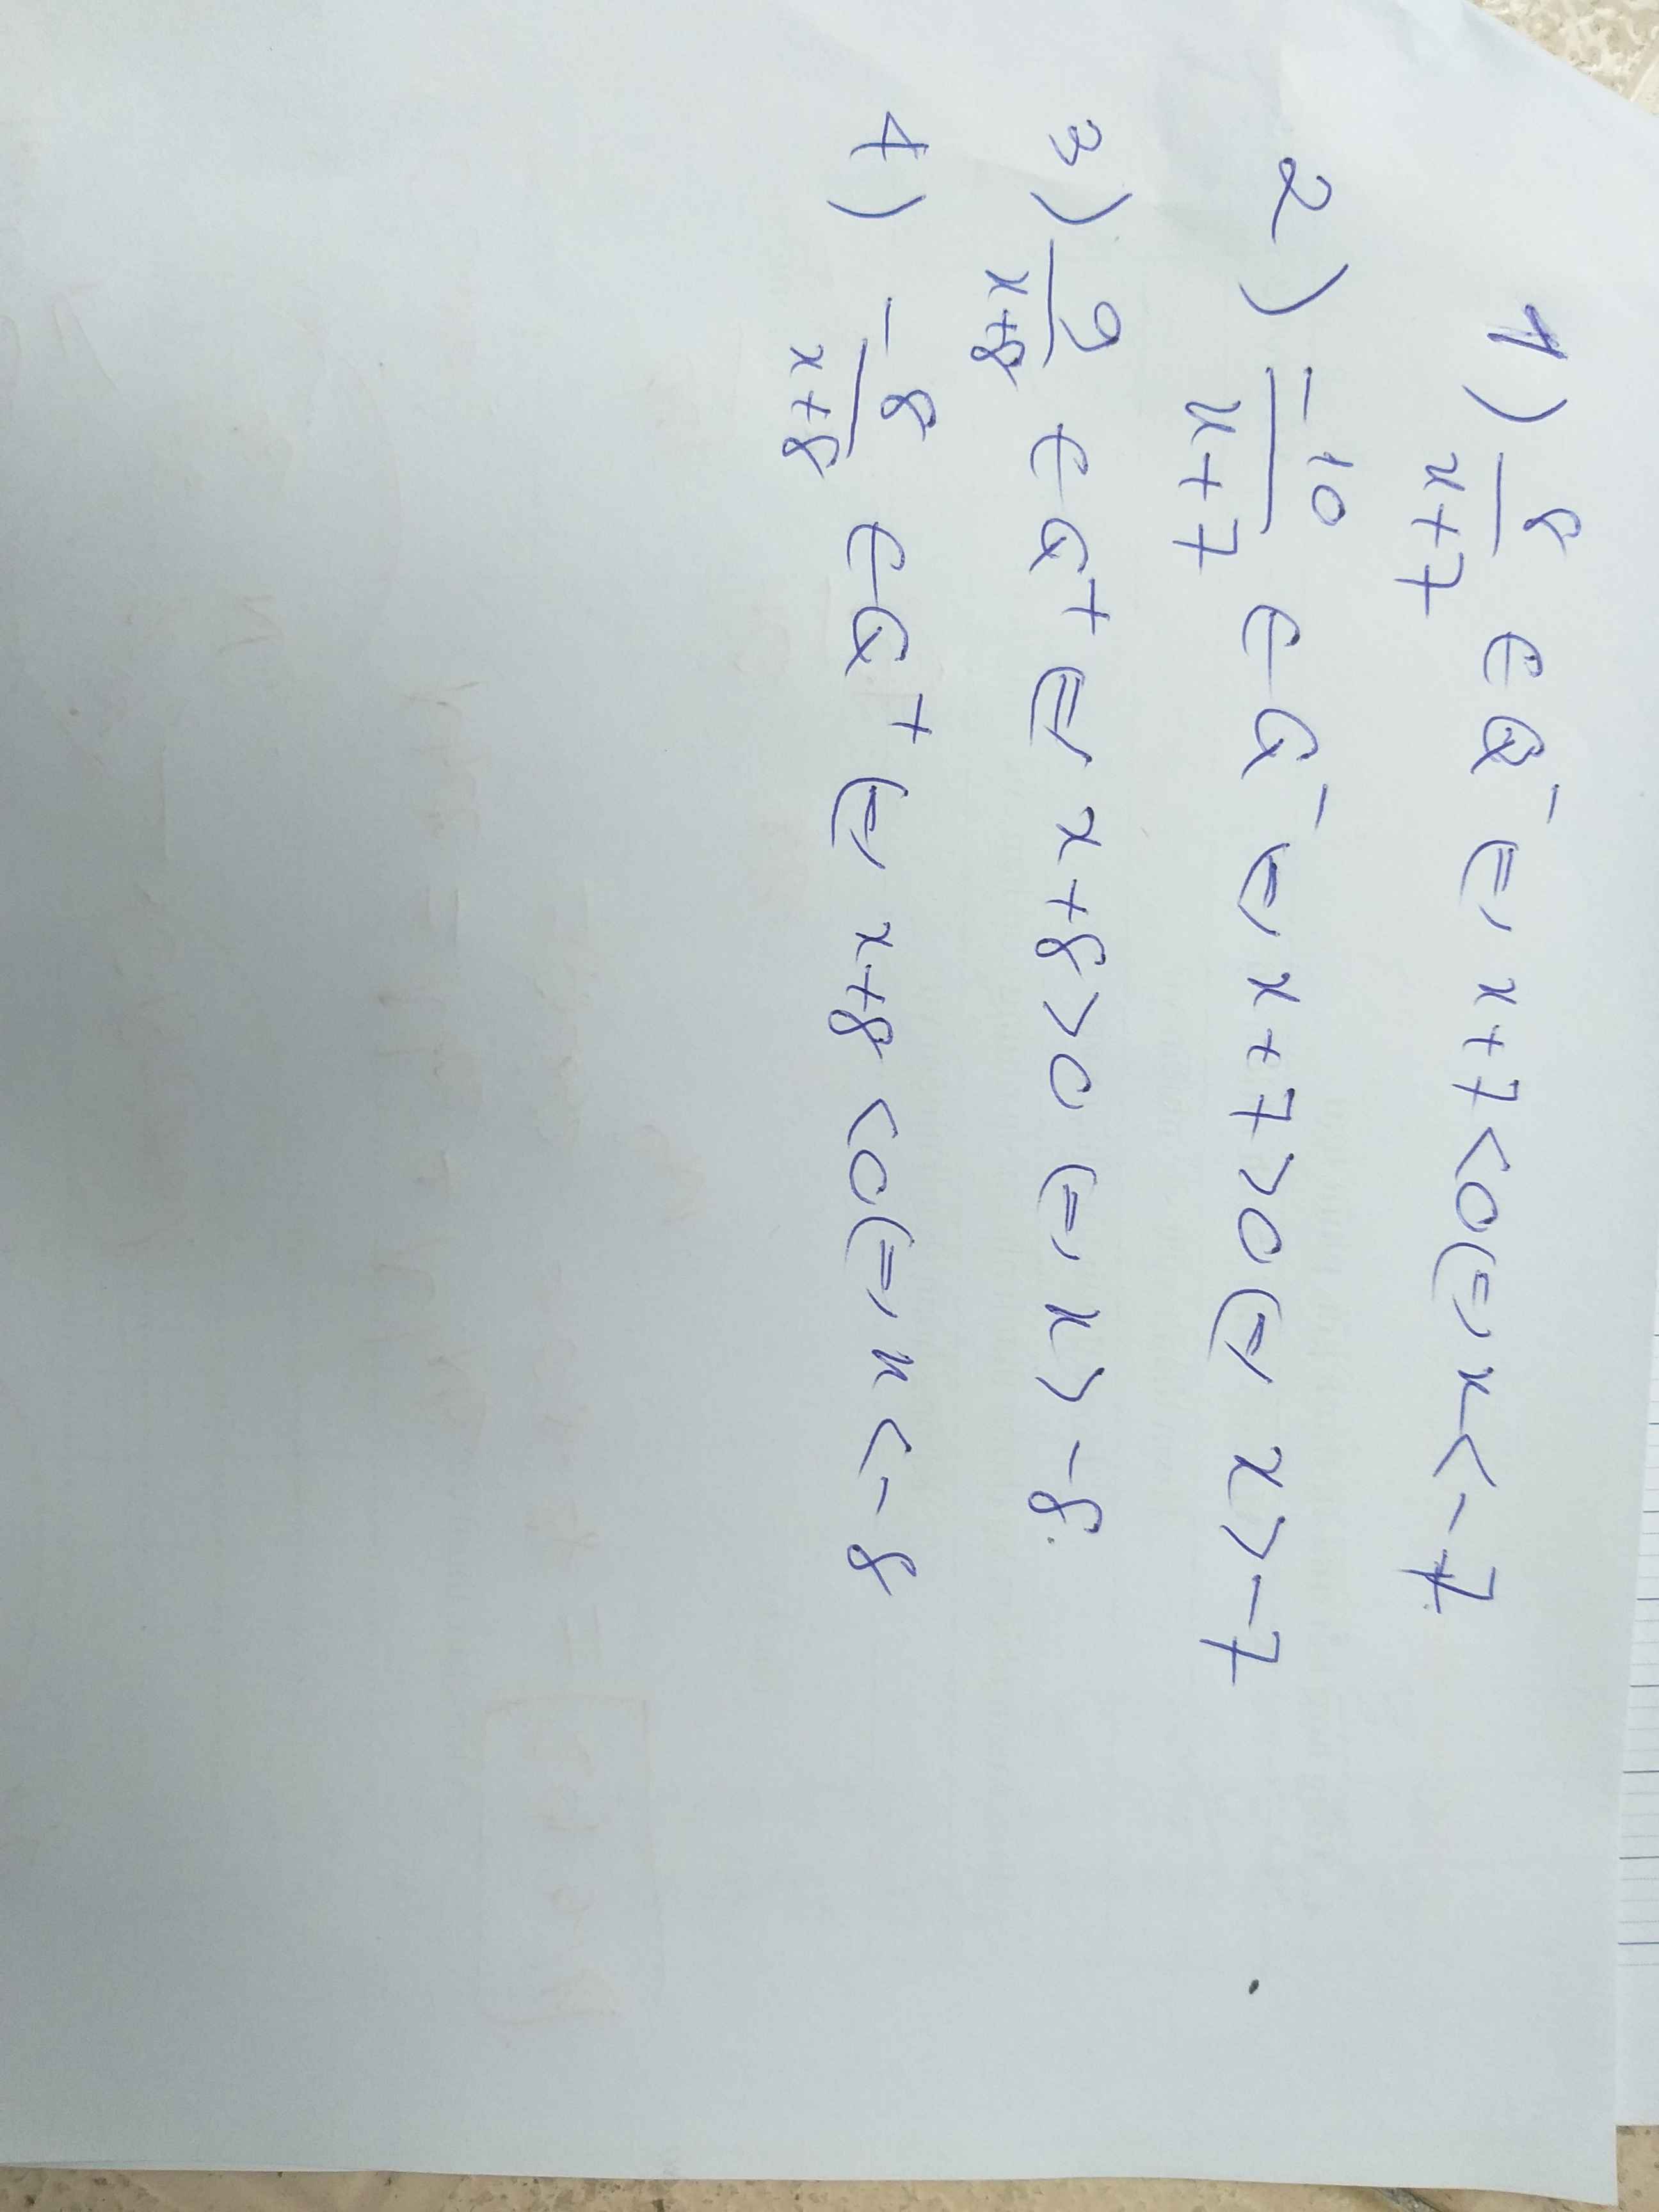 1) 8/(x+7) ∈ Q⁻ ⇔ x+7<0 ⇔ x<-7
2) -10/(x+7) ∈ Q⁻ ⇔ x+7>0 ⇔ x>-7
3) 9/(x+8) ∈ Q⁺ ⇔ x+8>0 ⇔ x>-8
4) -8/(x+8) ∈ Q⁺ ⇔ x+8<0 ⇔ x<-8